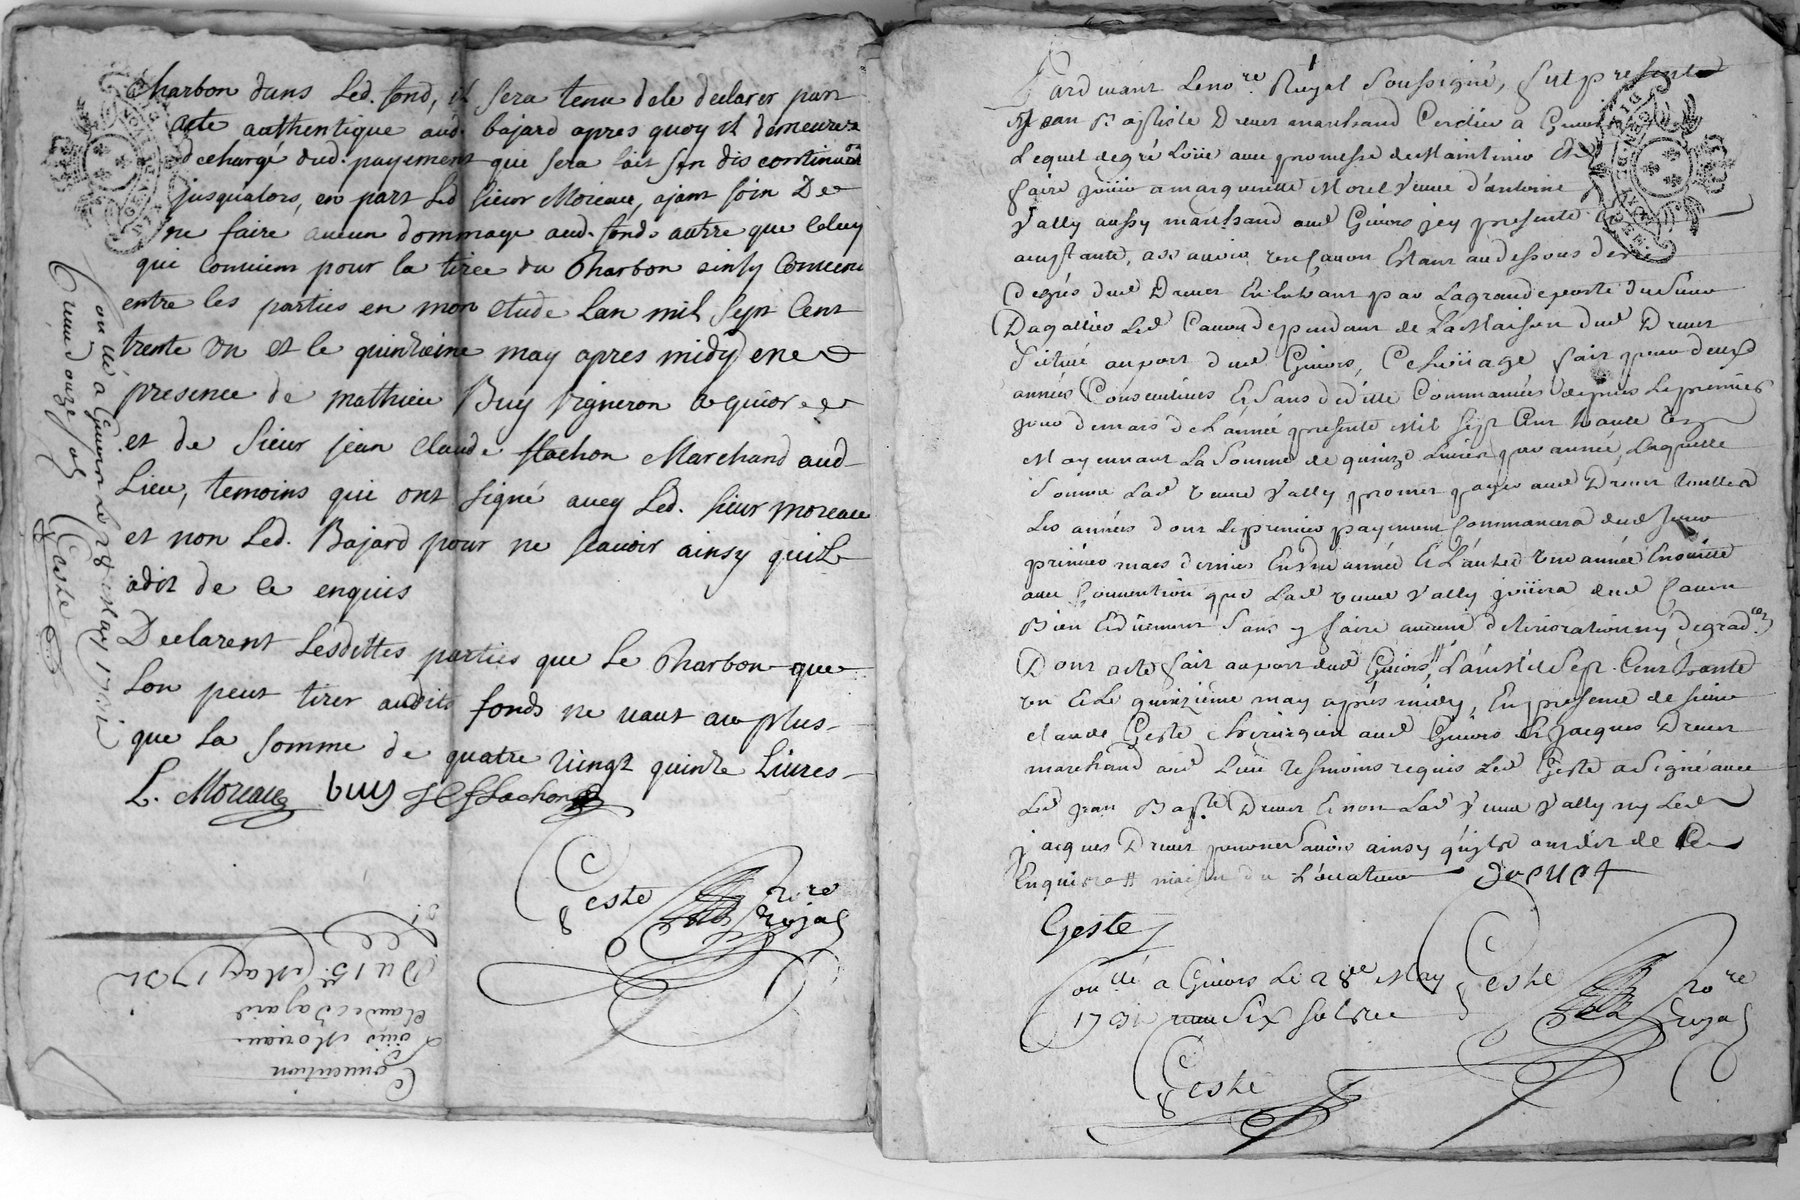 charbon dans Led. fond, il sera tenu dele declarer part
acte authentique aud. bajard apres quoy il demeurera
dechargé dud. payement que sera fait sen dis continuera
jusqualors, en part Led sieur Moreau, ajant soin De
ne faire aucun dommage aud. fonds autre que Celuy
qui Convient pour la tiree du Charbon ainsy Convenu
entre les parties en mon etude Lan mil Sept Cent
trente un et le quinzieme may apres midy en
presence de mathieu Buy vigneron a givor
et de sieur jean Claude flachon Marchand aud
Lieu, temoins qui ont signé avec Led. sieur moreau
et non Led. Bajard pour ne scavoir ainsy quil
adit de ce enquis
Declarent lesdittes parties que Le Charbon que
Lon peut tirer audits fonds ne vaut au plus
que La somme de quatre vingt quinze Livres
L. Moreau buy JC flachon
Geste nre royal
Con llé a Givors le 28 May 1731
Reçu douze sols
Geste
Convention
Louis Moreau
Claude Bajard
Du 15e May 1731
Pardevant Leno.re Royal soussigné, fut present
Jean Baptiste Drevet marchand Cordier a Givors
Lequel degré Loüe avec promesse de Maintenir Et
faire joüir a marguerite Morel veuve d'antoine
Vally aussy marchand aud Givors jcy presente
acceptante, assavoir un Cavon Estant au dessous des
Degrés dud Drevet En Entrant par Lagrande porte du Sieur
Dagallier Led Cavon dependant de La Maison dud Drevet
Située au port dud Givors, Ce Loüage fait pour deux
années Consecutives Et sans déditte Commancées depuis Lepremier
jour demars de L'année presente Mil Sept Cent trante un
Moyennant La Somme de quinze Livres par année, Laquelle
Somme Lad veuve Vally promet payer aud Drevet toutes
Les années dont Lepremier payement Commancera dud jour
premier mars dernier En une année Et L'autre une année Ensuitte
avec Convention que Lad veuve Vally joüira dud Cavon
Bien Et düement Sans y faire aucune deteriorationny degrad.on
Dont acte fait au port dud Givors, L'an Mil Sept Cent trante
un Et Le quinzieme may apres midy, En presence de sieur
claude Geste chirurgien aud Givors Et Jacques Drevet
marchand aud Lieu tesmoins requis Led Geste a Signé avec
Led jean Bap.te Drevet Et non Lad veuve Vally ny Led
jacques Drevet pour ne Savoir ainsy qu'ils ont dit de Ce
Enquis maison du Locateur Drevet
Geste
Con llé a Givors Le 28e May
1731 reçu Six sols
Geste nore royal
Geste